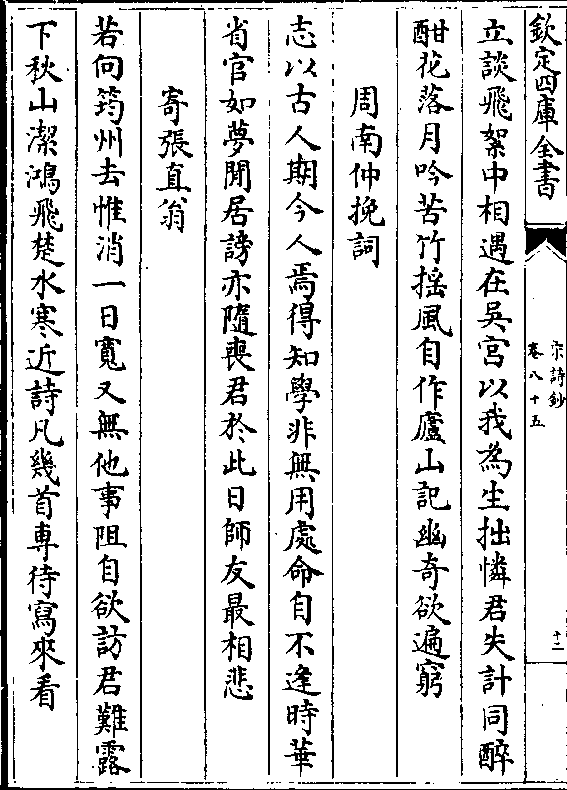 欽定四庫全書
宋詩鈔
卷八十五
十二
立談飛絮中相遇在吳宮以我為生拙憐君失計同醉
酣花落月吟苦竹揺風自作廬山記幽奇欲遍窮
周南仲挽詞
志以古人期今人焉得知學非無用處命自不逢時華
省官如夢閒居謗亦隨喪君於此日師友最相悲
寄張直翁
若向筠州去惟消一日寛又無他事阻自欲訪君難露
下秋山潔鴻飛楚水寒近詩凡幾首専待寫來看